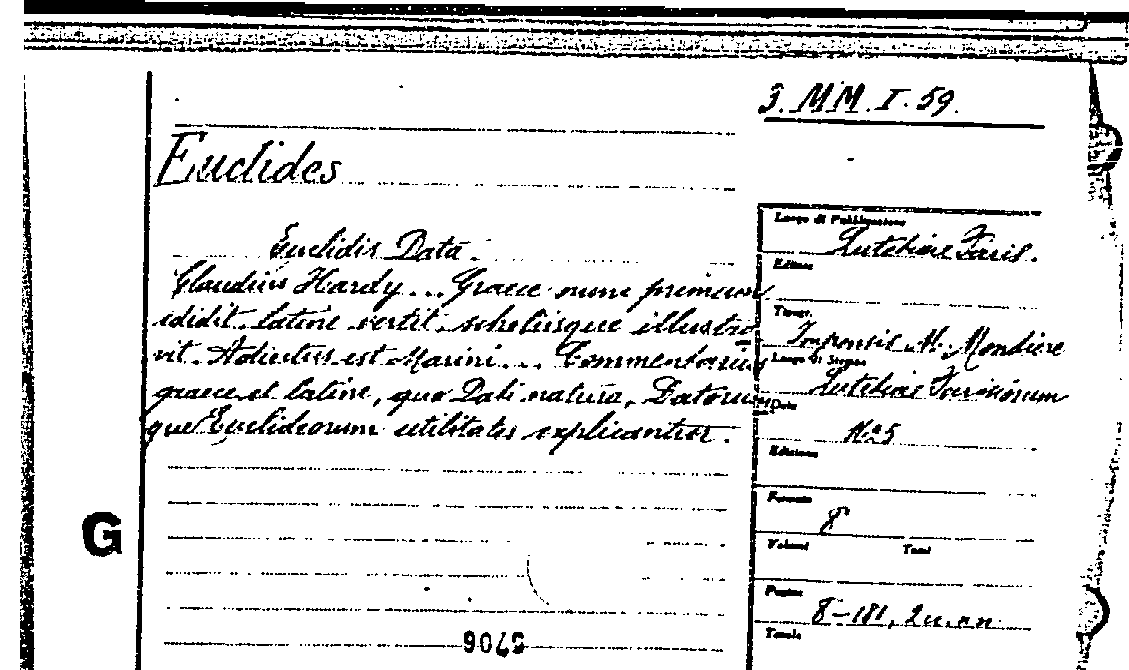 3. MM. I. 59.
Euclides
Euclidis Data.
Claudius Hardy ... Graece nunc primum
edidit, latine vertit, scholiisque illustra-
vit. Adiectus est Marini ... Commentarius
graece et latine, quo Dati natura, Datorum-
que Euclideorum utilitates explicantur.
Luogo di Pubblicazione
Lutetiae Paris.
Editore
Tipogr.
Impensis M. Mondiere
Luogo di Stampa
Lutetiae Parisiorum
Data
Edizione
Formato
8°
Volumi Tomi
Pagine
8-181, 2 n.n.
Tavole
G